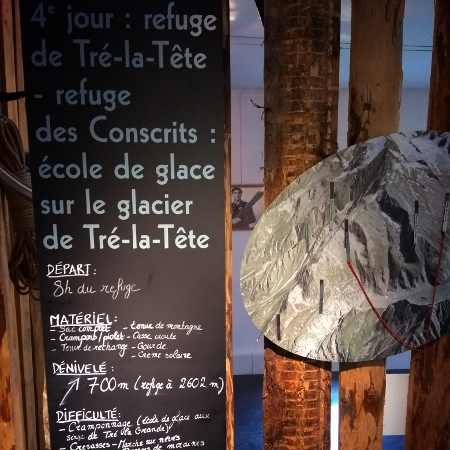 4e jour : refuge
de Tré-la-Tête
- refuge
des Conscrits :
école de glace
sur le glacier
de Tré-la-Tête
DÉPART :
8h du refuge
MATÉRIEL :
- Sac complet - tenue de montagne
- Crampons/piolet - Casse croute
- Tenue de rechange - Gourde
- Crème solaire
DÉNIVELÉ :
700m (refuge à 2602 m)
DIFFICULTÉ :
- Cramponnage (école de glace aux
de Tré la Grande)
- Crevasses - Marche sur névés
de moraines